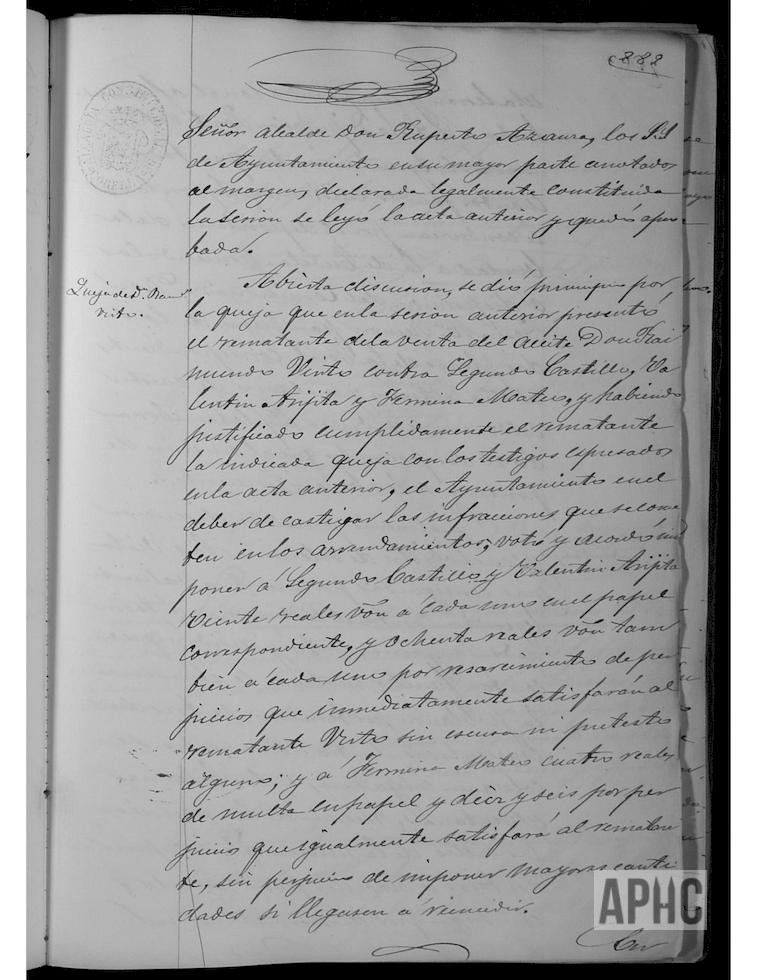 888
Señor Alcalde Don Ruperto Azaura, los SS
de Ayuntamiento en su mayor parte anotados
al margen, declarada legalmente constituida
la sesion se leyó la acta anterior y quedó apro
bada.
Queja de Dn. Raim
Virto.
Abierta discusion, se dió principio por
la queja que en la sesion anterior presentó
el rematante de la venta del Aceite Don Rai
mundo Virto contra Segundo Castillo, Va
lentin Arijita y Fermina Mateo, y habiendo
justificado cumplidamente el rematante
la indicada queja con los testigos espresados
en la acta anterior, el Ayuntamiento en el
deber de castigar las infracciones que se come
ten en los arrendamientos, votó y acordó im
poner á Segundo Castillo y Valentin Arijita
veinte reales von á cada uno en el papel
correspondiente, y ochenta reales von tam
bien á cada uno por resarcimiento de per
juicios que inmediatamente satisfarán al
rematante Virto sin escusa ni pretesto
alguno; y á Fermina Mateo cuatro reales
de multa en papel y diez y seis por per
juicios que igualmente satisfará al rematan
te, sin perjuicio de imponer mayores canti
dades si llegasen á reincidir.
En
APHC